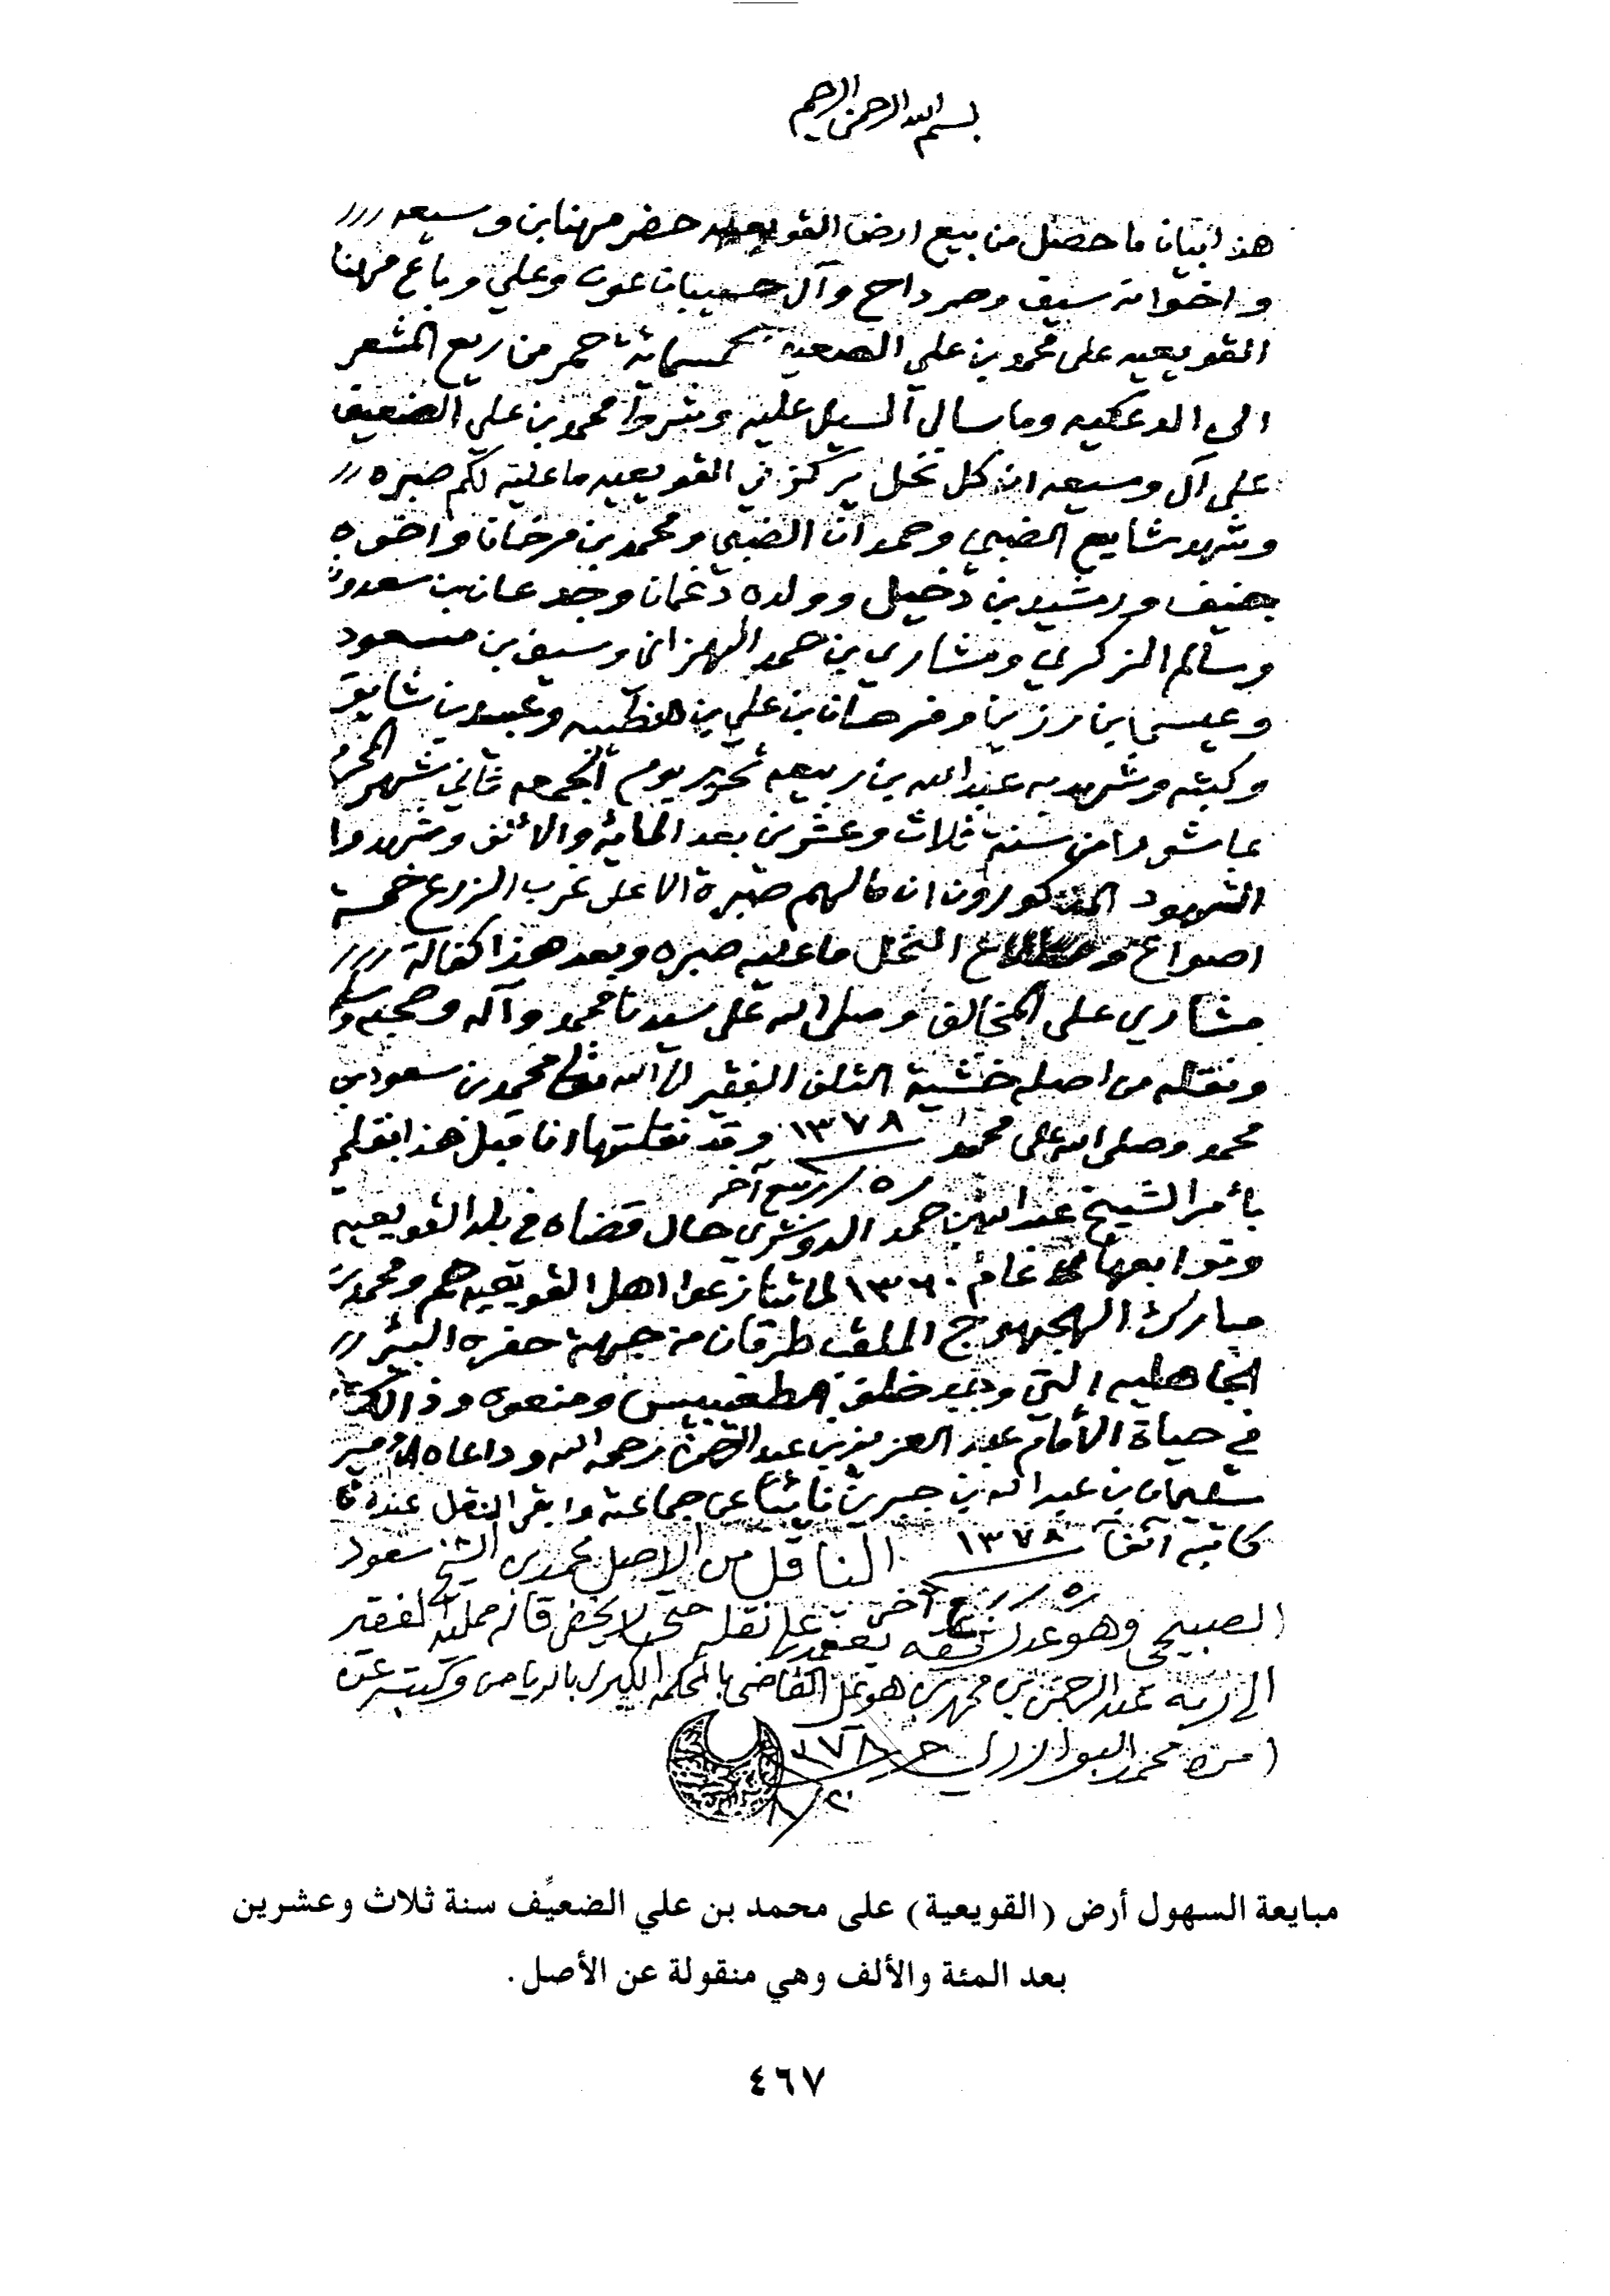 بسم الله الرحمن الرحيم
هذا بيان ما حصل من بيع ارض القويعيه حضر مهنا بن وسيعه
واخوانه سيف ومرداح وآل حسيبان عون وعلي وباع مهنا
القويعيه على محمد بن علي الضعيف بخمسماية حمر من ريع المشعر
الى الدعكيه وما سال السيل عليه وشرط محمد بن علي الضعيف
على آل وسيعه ان كل نخل يركز في القويعيه ما عليه لكم صبره
وشهد شايع الضبي وحمدان الضبي ومحمد بن فرحان واخوه
هنيف ورشيد بن دخيل وولده دغمان وجدعان بن سعدون
وسالم الزكري ومشاري بن حمد الهزاني وسيف بن مسعود
وعيسى بن رزين وفرهان بن علي بن وعبيد بن شايق
وكتبه وشهد به عبدالله بن ربيعه تحرير يوم الجمعه ثاني شهر المحرم
عاشورا من سنة ثلاث وعشرين بعد الماية والالف وشهدوا
الشهود المذكورون ان مالهم صبرة الا على غرب الزرع خمسة
اصواع النخل ما عليه صبره وبعد هذا كفالة
مشاري على المخالف وصلى الله على سيدنا محمد وآله وصحبه وسلم
ونقله من اصله خشية التلف الفقير الى الله محمد بن سعود بن
محمد وصلى الله على محمد ١٣٧٨ وقد نقلتها انا قبل هذا بقلم
٥ ربيع آخر
بأمر الشيخ عبدالله بن حمد الدوسري حال قضاه في بلد القويعيه
وتوابعها عام ١٣٦٠ لما تنازعوا اهل القويعيه هم ومحمد بن
مبارك الهجهوج الملقب طرقان من جهة حفره البئر
الجاهليه التي خلف ومنعوه وذالك
في حياة الأمام عبد العزيز بن عبد الرحمن رحمه الله الأمير
سليمان بن عبدالله بن جبرين نائبا عن جماعته وابقى النقل عنده
كاتبه آنفا ١٣٧٨ الناقل من الاصل محمد بن الشيخ سعود
٥ ربيع آخر
الصبيحي وهو عدل ثقه يعتمد على نقله حتى لا يخفى قاله ممليه الفقير
الى ربه عبد الرحمن بن محمد بن هويمل القاضي بالمحكمه الكبرى بالرياض وكتبه عن
امره محمد
مبايعة السهول أرض (القويعية) على محمد بن علي الضعيِّف سنة ثلاث وعشرين
بعد المئة والألف وهي منقولة عن الأصل.
٤٦٧